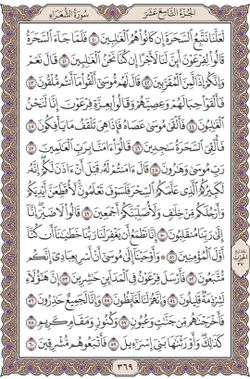 الجزء التاسع عشر
سورة الشعراء
لَعَلَّنَا نَتَّبِعُ السَّحَرَةَ إِن كَانُوا هُمُ الْغَالِبِينَ ٤٠ فَلَمَّا جَاءَ السَّحَرَةُ
قَالُوا لِفِرْعَوْنَ أَئِنَّ لَنَا لَأَجْرًا إِن كُنَّا نَحْنُ الْغَالِبِينَ ٤١ قَالَ نَعَمْ
وَإِنَّكُمْ إِذًا لَّمِنَ الْمُقَرَّبِينَ ٤٢ قَالَ لَهُم مُّوسَى أَلْقُوا مَا أَنتُم مُّلْقُونَ ٤٣
فَأَلْقَوْا حِبَالَهُمْ وَعِصِيَّهُمْ وَقَالُوا بِعِزَّةِ فِرْعَوْنَ إِنَّا لَنَحْنُ
الْغَالِبُونَ ٤٤ فَأَلْقَى مُوسَى عَصَاهُ فَإِذَا هِيَ تَلْقَفُ مَا يَأْفِكُونَ ٤٥
فَأُلْقِيَ السَّحَرَةُ سَاجِدِينَ ٤٦ قَالُوا آمَنَّا بِرَبِّ الْعَالَمِينَ ٤٧
رَبِّ مُوسَى وَهَارُونَ ٤٨ قَالَ آمَنتُمْ لَهُ قَبْلَ أَنْ آذَنَ لَكُمْ إِنَّهُ
لَكَبِيرُكُمُ الَّذِي عَلَّمَكُمُ السِّحْرَ فَلَسَوْفَ تَعْلَمُونَ لَأُقَطِّعَنَّ أَيْدِيَكُمْ
وَأَرْجُلَكُم مِّنْ خِلَافٍ وَلَأُصَلِّبَنَّكُمْ أَجْمَعِينَ ٤٩ قَالُوا لَا ضَيْرَ إِنَّا
إِلَى رَبِّنَا مُنقَلِبُونَ ٥٠ إِنَّا نَطْمَعُ أَن يَغْفِرَ لَنَا رَبُّنَا خَطَايَانَا أَن كُنَّا
أَوَّلَ الْمُؤْمِنِينَ ٥١ وَأَوْحَيْنَا إِلَى مُوسَى أَنْ أَسْرِ بِعِبَادِي إِنَّكُم
مُّتَّبَعُونَ ٥٢ فَأَرْسَلَ فِرْعَوْنُ فِي الْمَدَائِنِ حَاشِرِينَ ٥٣ إِنَّ هَؤُلَاءِ
لَشِرْذِمَةٌ قَلِيلُونَ ٥٤ وَإِنَّهُمْ لَنَا لَغَائِظُونَ ٥٥ وَإِنَّا لَجَمِيعٌ حَاذِرُونَ ٥٦
فَأَخْرَجْنَاهُم مِّن جَنَّاتٍ وَعُيُونٍ ٥٧ وَكُنُوزٍ وَمَقَامٍ كَرِيمٍ ٥٨
كَذَلِكَ وَأَوْرَثْنَاهَا بَنِي إِسْرَائِيلَ ٥٩ فَأَتْبَعُوهُم مُّشْرِقِينَ ٦٠
٣٦٩